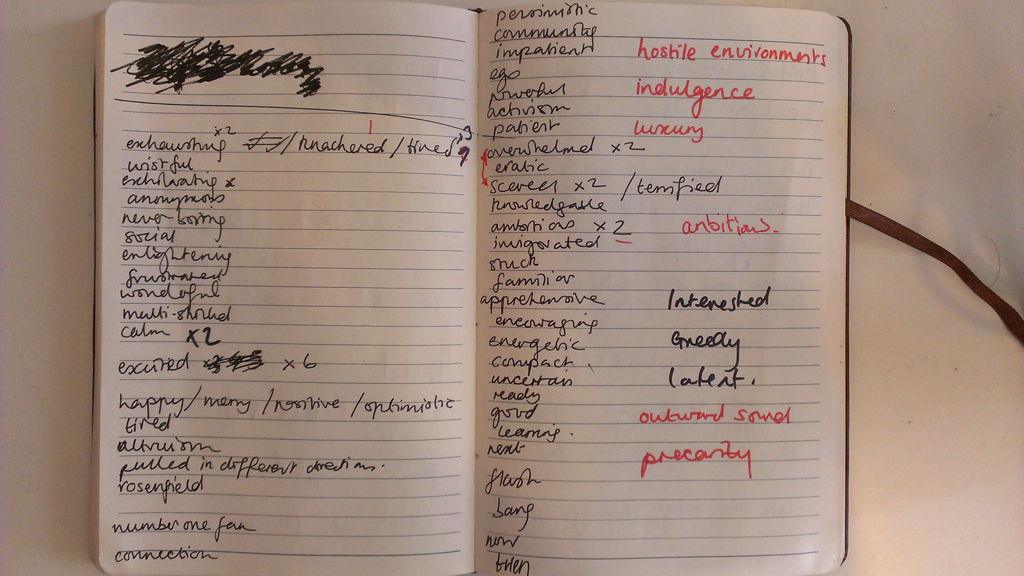 exhausting x2 / knackered / tired x3
wistful
exhilarating x
anonymous
never-boring
social
enlightening
frustrated
wonderful
multi-skilled
calm x2
excited x6
happy / merry / positive / optimistic
tired
altruism
pulled in different directions.
rosenfield
number one fan
connection
pessimistic
community
impatient
ego
powerful
activism
patient
overwhelmed x2
eratic
scared x2 / terrified
knowledgable
ambitious x2
invigorated
stuck
familiar
apprehensive
encouraging
energetic
compact
uncertain
ready
good
learning.
next
flash
bang
now
then
hostile environments
indulgence
luxury
ambitious.
Interested
Greedy
latent.
outward sound
precarity